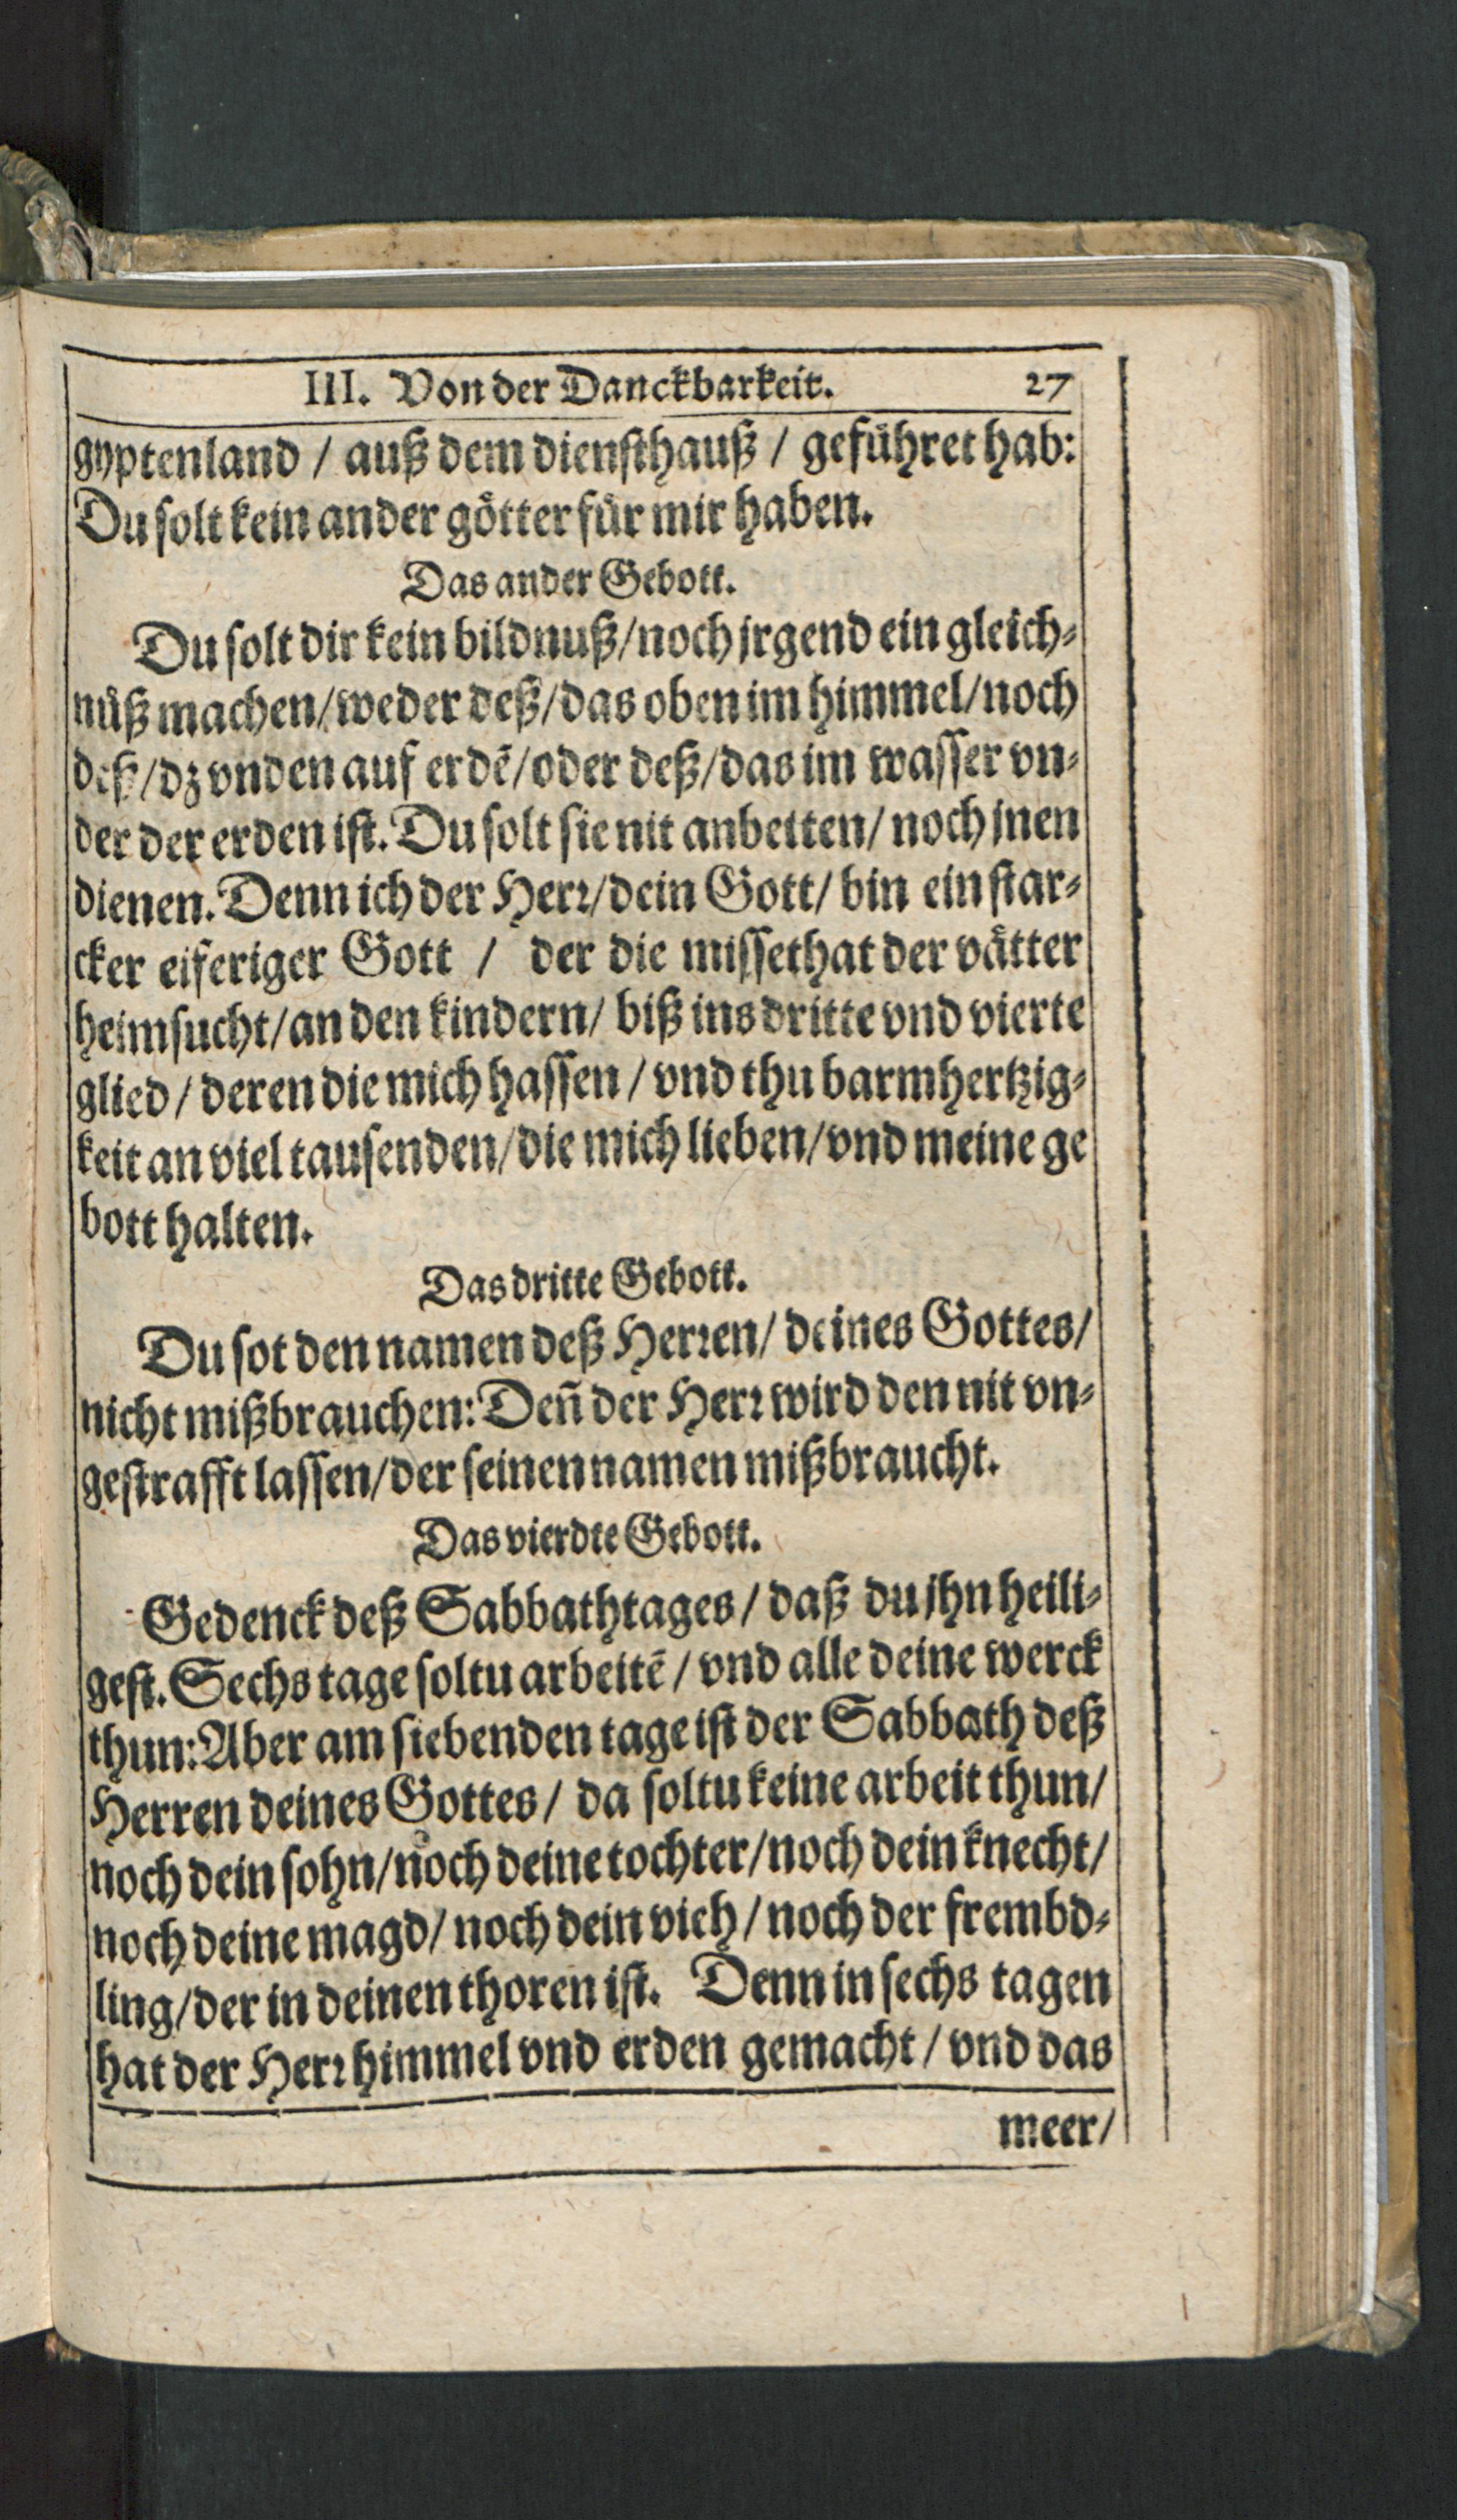 III. Von der Danckbarkeit. 27
gyptenland / auß dem diensthauß / geführet hab:
Du solt kein ander götter für mir haben.
Das ander Gebott.
Du solt dir kein bildnuß/noch jrgend ein gleich-
nüß machen/weder deß/das oben im himmel/noch
deß/dz vnden auf erdē/oder deß/das im wasser vn-
der der erden ist. Du solt sie nit anbetten/ noch jnen
dienen. Denn ich der Herr/dein Gott/ bin ein star-
cker eiferiger Gott / der die missethat der vätter
heimsucht/an den kindern/ biß ins dritte vnd vierte
glied / deren die mich hassen / vnd thu barmhertzig-
keit an viel tausenden/die mich lieben/vnd meine ge
bott halten.
Das dritte Gebott.
Du sot den namen deß Herren/ deines Gottes/
nicht mißbrauchen: Deñ der Herr wird den nit vn-
gestrafft lassen/der seinen namen mißbraucht.
Das vierdte Gebott.
Gedenck deß Sabbathtages / daß du jhn heili-
gest. Sechs tage soltu arbeitē / vnd alle deine werck
thun: Aber am siebenden tage ist der Sabbath deß
Herren deines Gottes / da soltu keine arbeit thun/
noch dein sohn/noch deine tochter/noch dein knecht/
noch deine magd/ noch dein vieh / noch der frembd-
ling/der in deinen thoren ist. Denn in sechs tagen
hat der Herr himmel vnd erden gemacht / vnd das
meer/